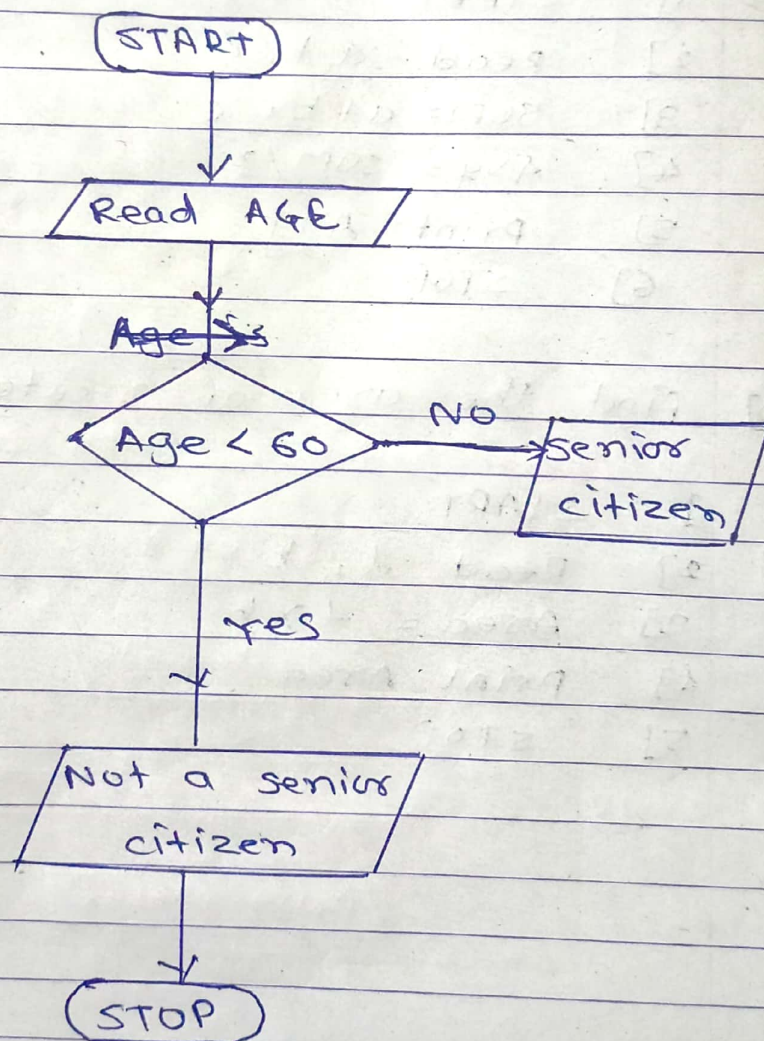 START
Read AGE
Age is
Age < 60
NO
senior
citizen
Yes
Not a senior
citizen
STOP